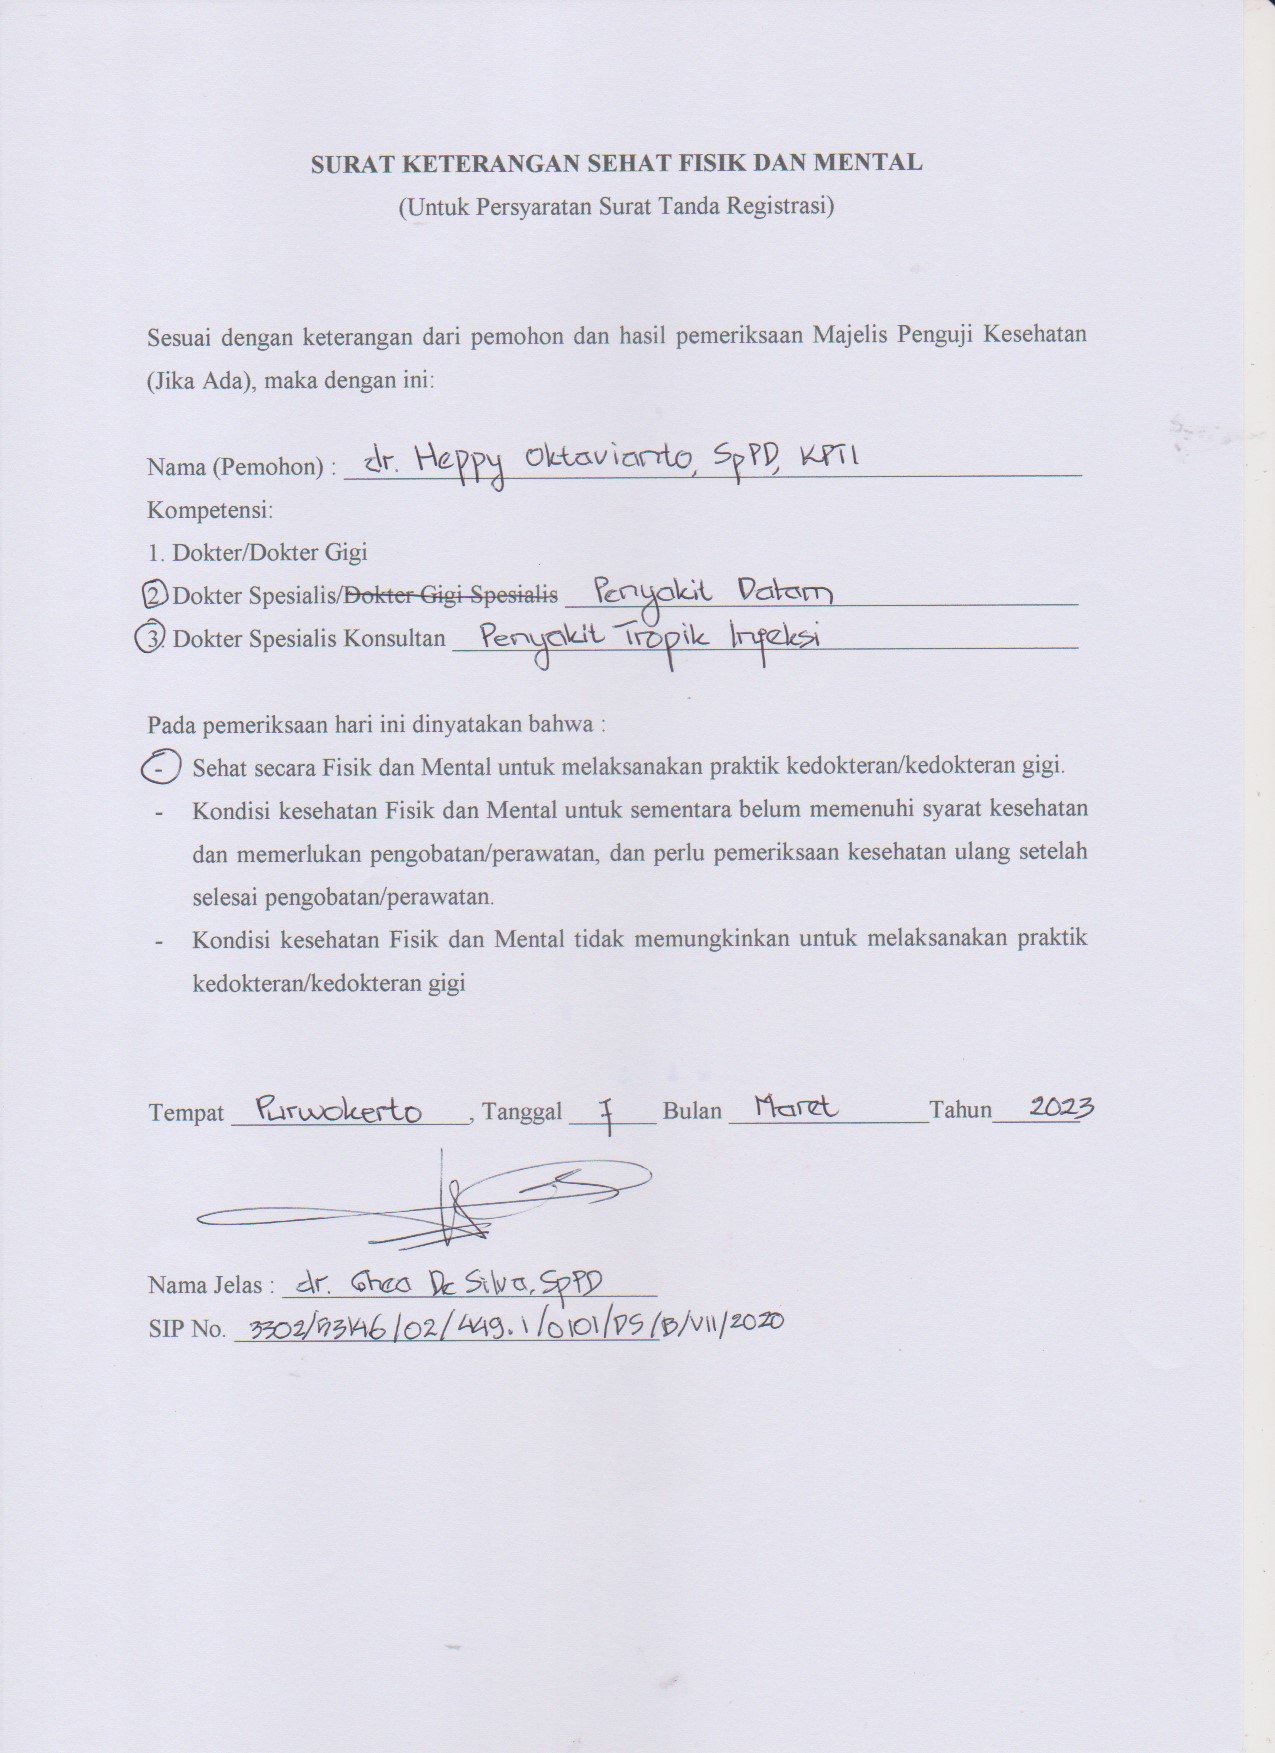 SURAT KETERANGAN SEHAT FISIK DAN MENTAL
(Untuk Persyaratan Surat Tanda Registrasi)
Sesuai dengan keterangan dari pemohon dan hasil pemeriksaan Majelis Penguji Kesehatan
(Jika Ada), maka dengan ini:
Nama (Pemohon) : dr. Heppy Oktavianto, SpPD, KPTI
Kompetensi:
1. Dokter/Dokter Gigi
2. Dokter Spesialis/Dokter Gigi Spesialis Penyakit Dalam
3. Dokter Spesialis Konsultan Penyakit Tropik Infeksi
Pada pemeriksaan hari ini dinyatakan bahwa :
- Sehat secara Fisik dan Mental untuk melaksanakan praktik kedokteran/kedokteran gigi.
- Kondisi kesehatan Fisik dan Mental untuk sementara belum memenuhi syarat kesehatan
dan memerlukan pengobatan/perawatan, dan perlu pemeriksaan kesehatan ulang setelah
selesai pengobatan/perawatan.
- Kondisi kesehatan Fisik dan Mental tidak memungkinkan untuk melaksanakan praktik
kedokteran/kedokteran gigi
Tempat Purwokerto, Tanggal 7 Bulan Maret Tahun 2023
Nama Jelas : dr. Ghea De Silva, SpPD
SIP No.